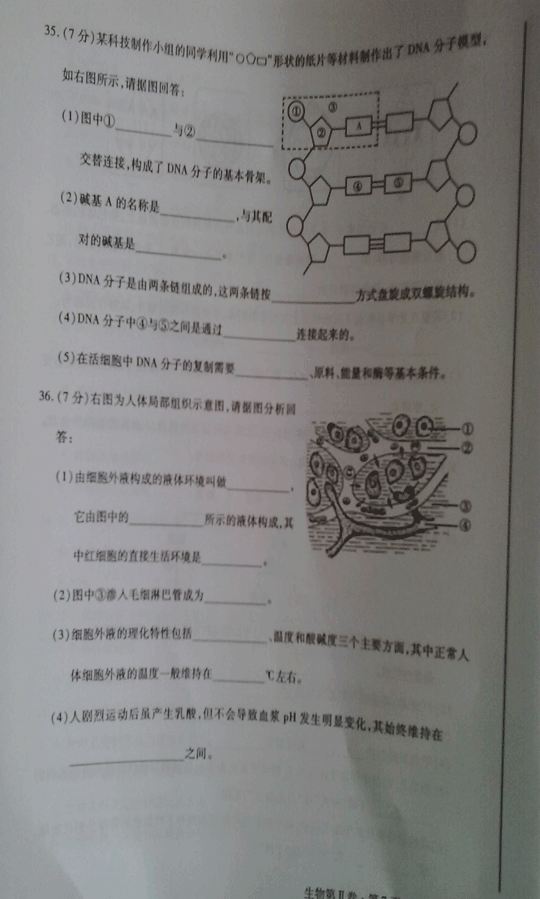 35.(7分)某科技制作小组的同学利用“○⬠▭”形状的纸片等材料制作出了DNA分子模型,
如右图所示,请据图回答:
(1)图中①________与②________
交替连接,构成了DNA分子的基本骨架。
(2)碱基A的名称是________,与其配
对的碱基是________。
① ③
② A
④ ⑤
(3)DNA分子是由两条链组成的,这两条链按________方式盘旋成双螺旋结构。
(4)DNA分子中④与⑤之间是通过________连接起来的。
(5)在活细胞中DNA分子的复制需要________、原料、能量和酶等基本条件。
36.(7分)右图为人体局部组织示意图,请据图分析回
答:
(1)由细胞外液构成的液体环境叫做________,
它由图中的________所示的液体构成,其
中红细胞的直接生活环境是________。
①
②
③
④
(2)图中③渗入毛细淋巴管成为________。
(3)细胞外液的理化特性包括________、温度和酸碱度三个主要方面,其中正常人
体细胞外液的温度一般维持在________℃左右。
(4)人剧烈运动后虽产生乳酸,但不会导致血浆pH发生明显变化,其始终维持在
________之间。
生物第Ⅱ卷·第